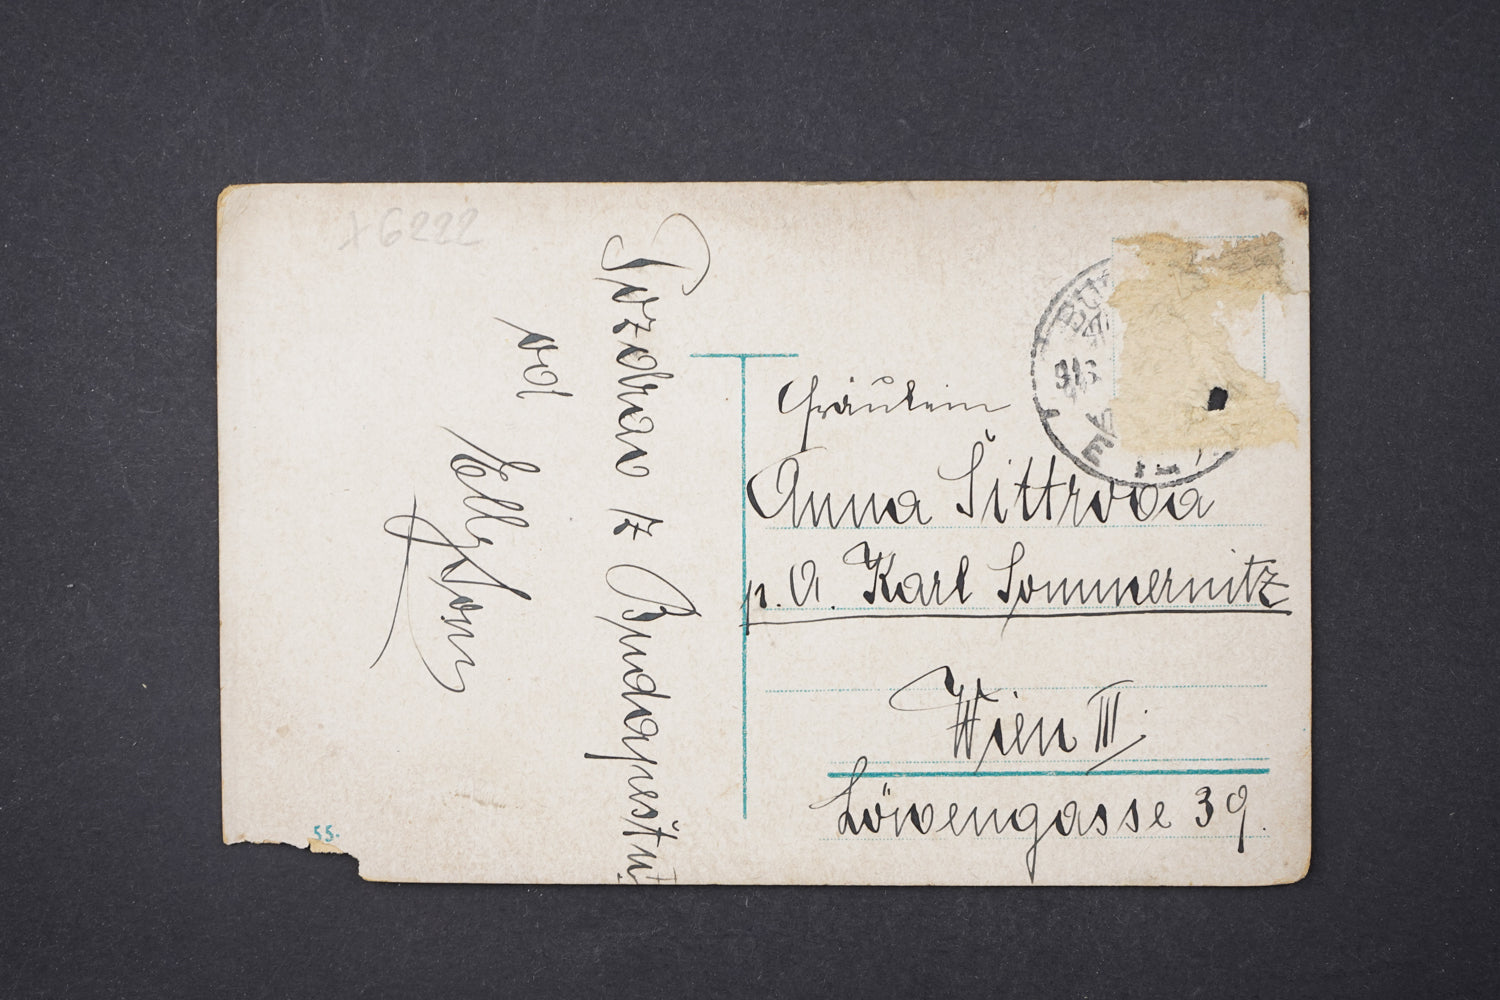 +6222
Pozdrav z Budapeštu
od
Elly
BU
913
E
Fräulein
Anna Šittrova
p. A. Karl Sommernitz
Wien III.
Löwengasse 39.
55.